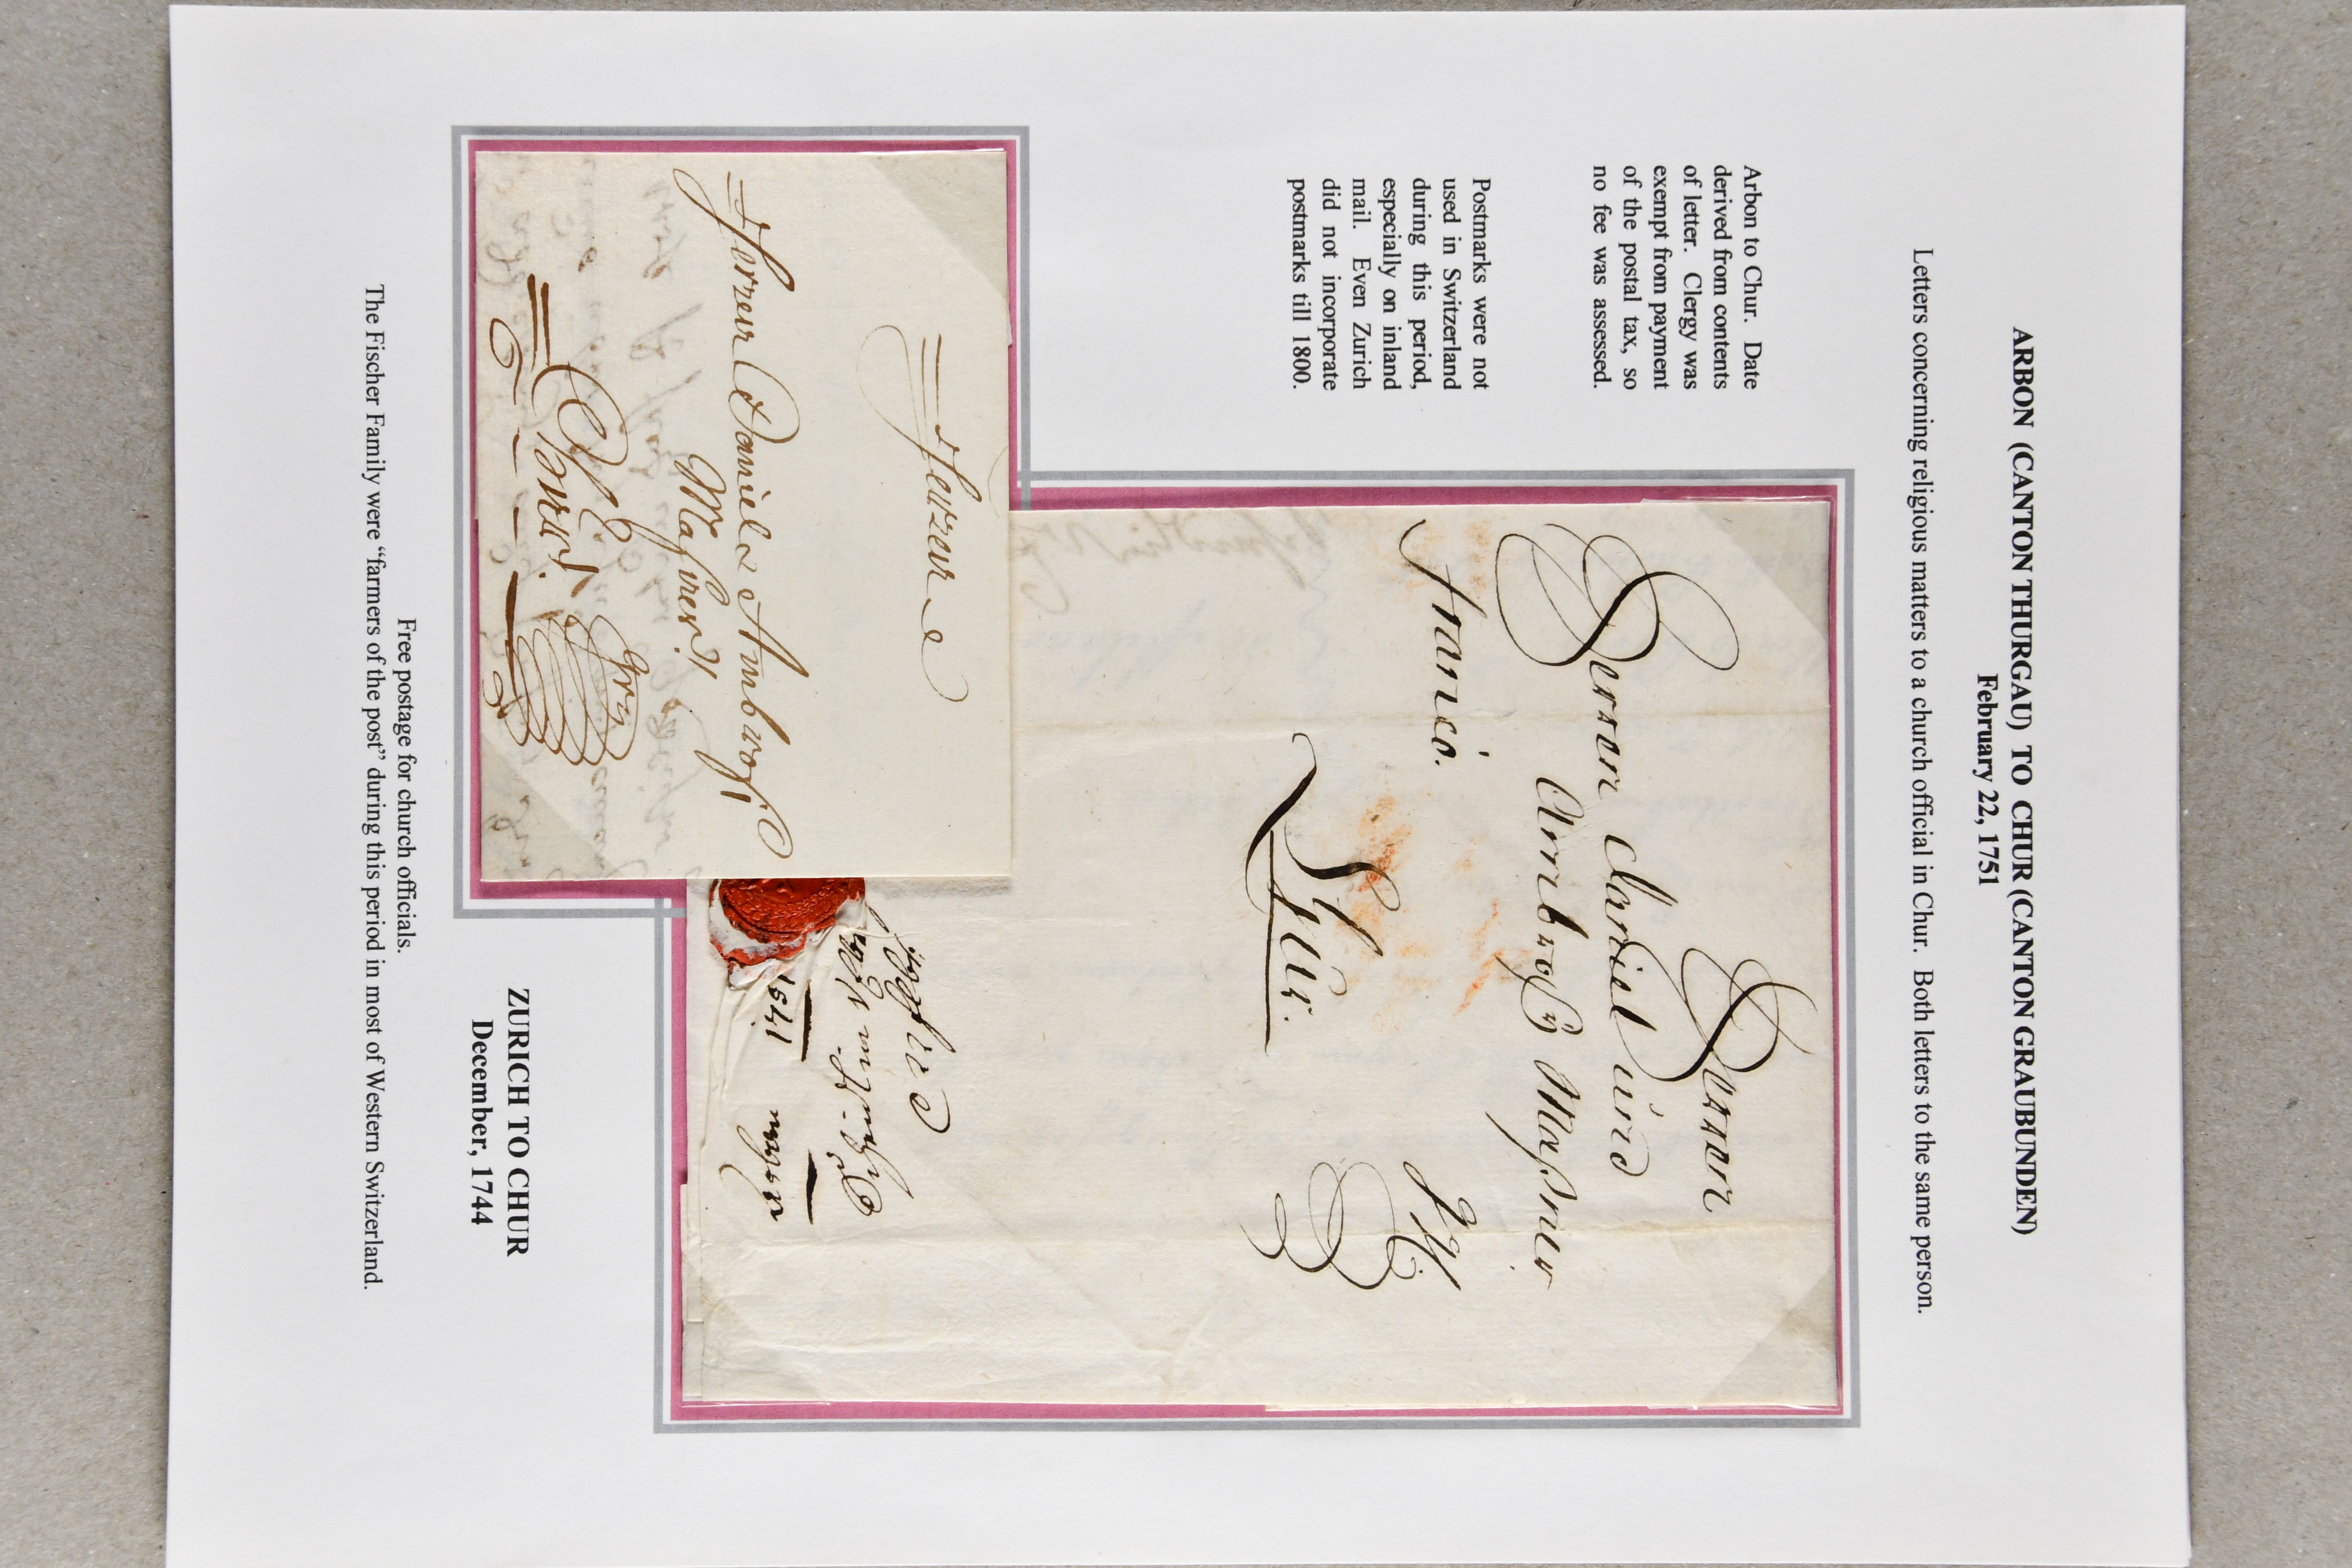 ARBON (CANTON THURGAU) TO CHUR (CANTON GRAUBUNDEN)
February 22, 1751
Letters concerning religious matters to a church official in Chur. Both letters to the same person.
Arbon to Chur. Date
derived from contents
of letter. Clergy was
exempt from payment
of the postal tax, so
no fee was assessed.
Postmarks were not
used in Switzerland
during this period,
especially on inland
mail. Even Zurich
did not incorporate
postmarks till 1800.
Herren
Herren Daniel und
Ambrosy Massner
franco.
Chur.
1751
Herren
Herren Daniel & Ambrosi
Massner
Chur
ZURICH TO CHUR
December, 1744
Free postage for church officials.
The Fischer Family were "farmers of the post" during this period in most of Western Switzerland.